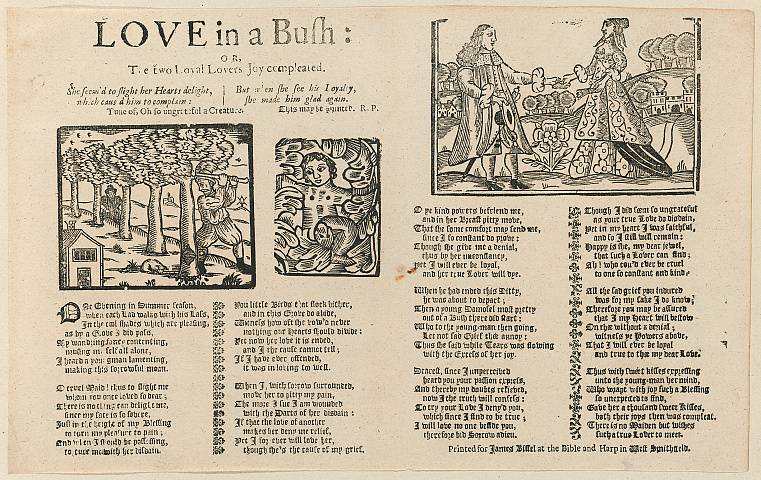 LOVE in a Bush:
OR,
The two Loyal Lovers Joy compleated.
She seem'd to slight her Hearts delight,
which caus'd him to complain:
But when she see his Loyalty,
she made him glad again.
Tune of, Oh so ungrateful a Creature.
This may be printed. R. P.
ONe Evening in Summer season,
when each Lad walks with his Lass,
In the cool shades which are pleasing,
as by a Grove I did pass,
My wandring fancy contenting,
musing my self all alone,
I heard a young man lamenting,
making this sorrowful moan.
O cruel Maid! thus to slight me
whom you once loved so dear;
There is nothing can delight me,
since my fate is so severe,
Just in the height of my Blessing
to turn my pleasure to pain;
And when I should be possessing,
to torture me with her disdain.
You little Birds that flock hither,
and in this Grove do abide,
Witness how oft she vow'd never
nothing our Hearts should divide:
Yet now her love it is ended,
and I the cause cannot tell;
If I have ever offended,
it was in loving too well.
When I, with sorrow surrounded,
move her to pitty my pain,
The more I sue I am wounded
with the Darts of her disdain:
If that the love of another
makes her deny me relief,
Yet I for ever will love her,
though she's the cause of my grief.
O ye kind powers befriend me,
and in her Breast pitty move,
That she some comfort may send me,
since I so constant do prove:
Though she give me a denial,
thus by her unconstancy,
Yet I will ever be loyal,
and her true Lover will dye.
When he had ended this Ditty,
he was about to depart;
Then a young Damosel most pretty
out of a Bush there did start:
Who to the young-man then going,
Let not sad Grief thee annoy:
Thus she said while Tears was flowing
with the Excess of her joy.
Dearest, since I imperceived
heard you your passion express,
And thereby my doubts relieved,
now I the truth will confess:
To try your Love I deny'd you,
which since I find to be true;
I will love no one beside you,
therefore bid Sorrow adieu.
Though I did seem so ungrateful
as your true Love to disdain,
Yet in my heart I was faithful,
and so I still will remain:
Happy is she, my dear jewel,
that such a Lover can find;
Ah! who cou'd ever be cruel
to one so constant and kind.
All the sad grief you indured
was for my sake I do know;
Therefore you may be assured
that I my Heart will bestow
On thee without a denial;
witness ye Powers above,
That I will ever be loyal
and true to thee my dear Love.
Thus with sweet kisses expressing
unto the young-man her mind,
Who wrapt with joy such a Blessing
so unexpected to find,
Gave her a thousand sweet Kisses,
both their joys then was compleat.
There is no Maiden but wishes
such a true Lover to meet.
Printed for James Bissel at the Bible and Harp in West Smithfield.